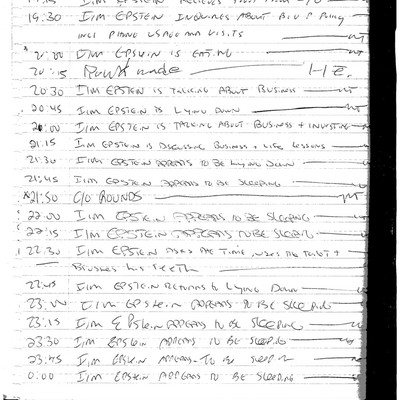 19:30 I/M EPSTEIN INQUIRES ABOUT B.O.P Policy
INCL PHONE USAGE AND VISITS
* 20:00 I/M EPSTEIN IS EATING
20:15 Rounds made
20:30 I/M EPSTEIN IS TALKING ABOUT BUSINESS
20:45 I/M EPSTEIN IS LYING DOWN
20:00 I/M EPSTEIN IS TALKING ABOUT BUSINESS + INVESTING
21:15 I/M EPSTEIN IS DISCUSSING BUSINESS + LIFE LESSONS
21:30 I/M EPSTEIN APPEARS TO BE LYING DOWN
21:45 I/M EPSTEIN APPEARS TO BE SLEEPING
*21:50 C/O ROUNDS
22:00 I/M EPSTEIN APPEARS TO BE SLEEPING
22:15 I/M EPSTEIN APPEARS TO BE SLEEPING
22:30 I/M EPSTEIN ASKS THE TIME USES THE TOILET +
BRUSHES HIS TEETH
22:45 I/M EPSTEIN RETURNS TO LYING DOWN
23:00 I/M EPSTEIN APPEARS TO BE SLEEPING
23:15 I/M EPSTEIN APPEARS TO BE SLEEPING
23:30 I/M EPSTEIN APPEARS TO BE SLEEPING
23:45 I/M EPSTEIN APPEARS TO BE SLEEPING
0:00 I/M EPSTEIN APPEARS TO BE SLEEPING